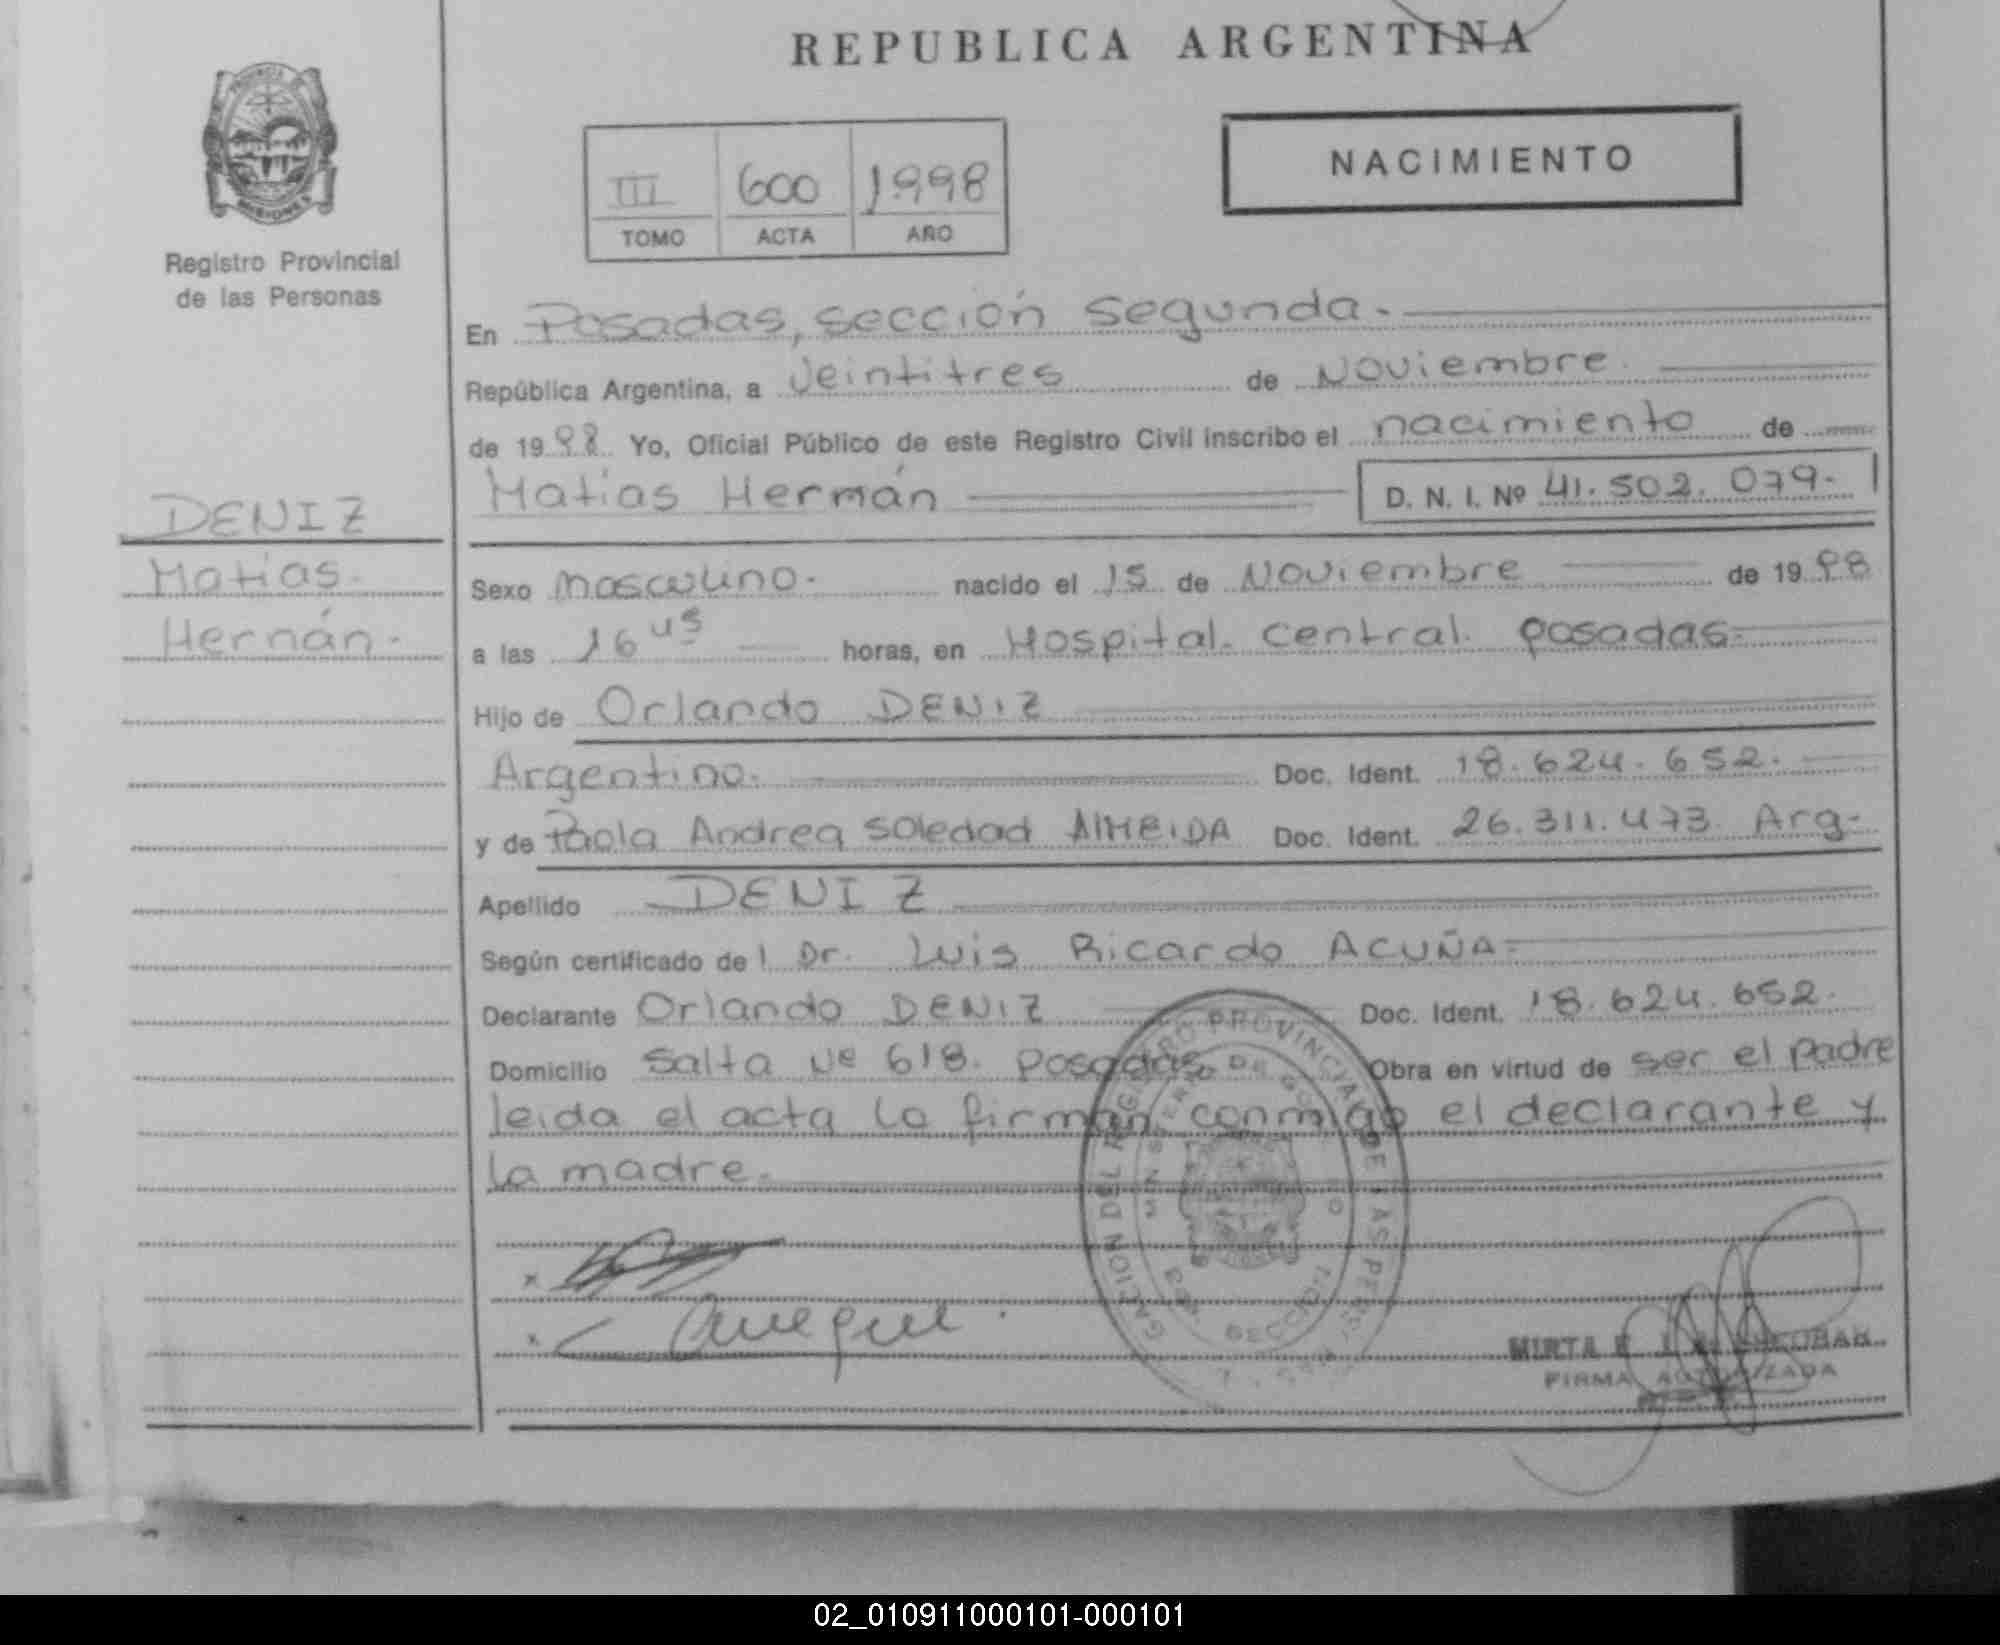 REPUBLICA ARGENTINA
PROVINCIA
MISIONES
Registro Provincial
de las Personas
III 600 1998
TOMO ACTA AÑO
NACIMIENTO
En Posadas, sección segunda.
República Argentina, a Veintitres de Noviembre.
de 1998 Yo, Oficial Público de este Registro Civil inscribo el nacimiento de
Matías Hernán D. N. I. Nº 41.502.079.
DENIZ
Matías.
Hernán.
Sexo masculino. nacido el 15 de Noviembre de 1998
a las 16 45 horas, en Hospital. central. posadas.
Hijo de Orlando DENIZ
Argentino. Doc. Ident. 18.624.652.
y de Paola Andrea Soledad AlMEIDA Doc. Ident. 26.311.473 Arg.
Apellido DENIZ
Según certificado de l Dr. Luis Ricardo ACUÑA.
Declarante Orlando DENIZ Doc. Ident. 18.624.652.
Domicilio Salta Nº 618. posadas Obra en virtud de ser el padre
leida el acta la firman conmigo el declarante y
la madre.
MIRTA
FIRMA AUTORIZADA
02_010911000101-000101